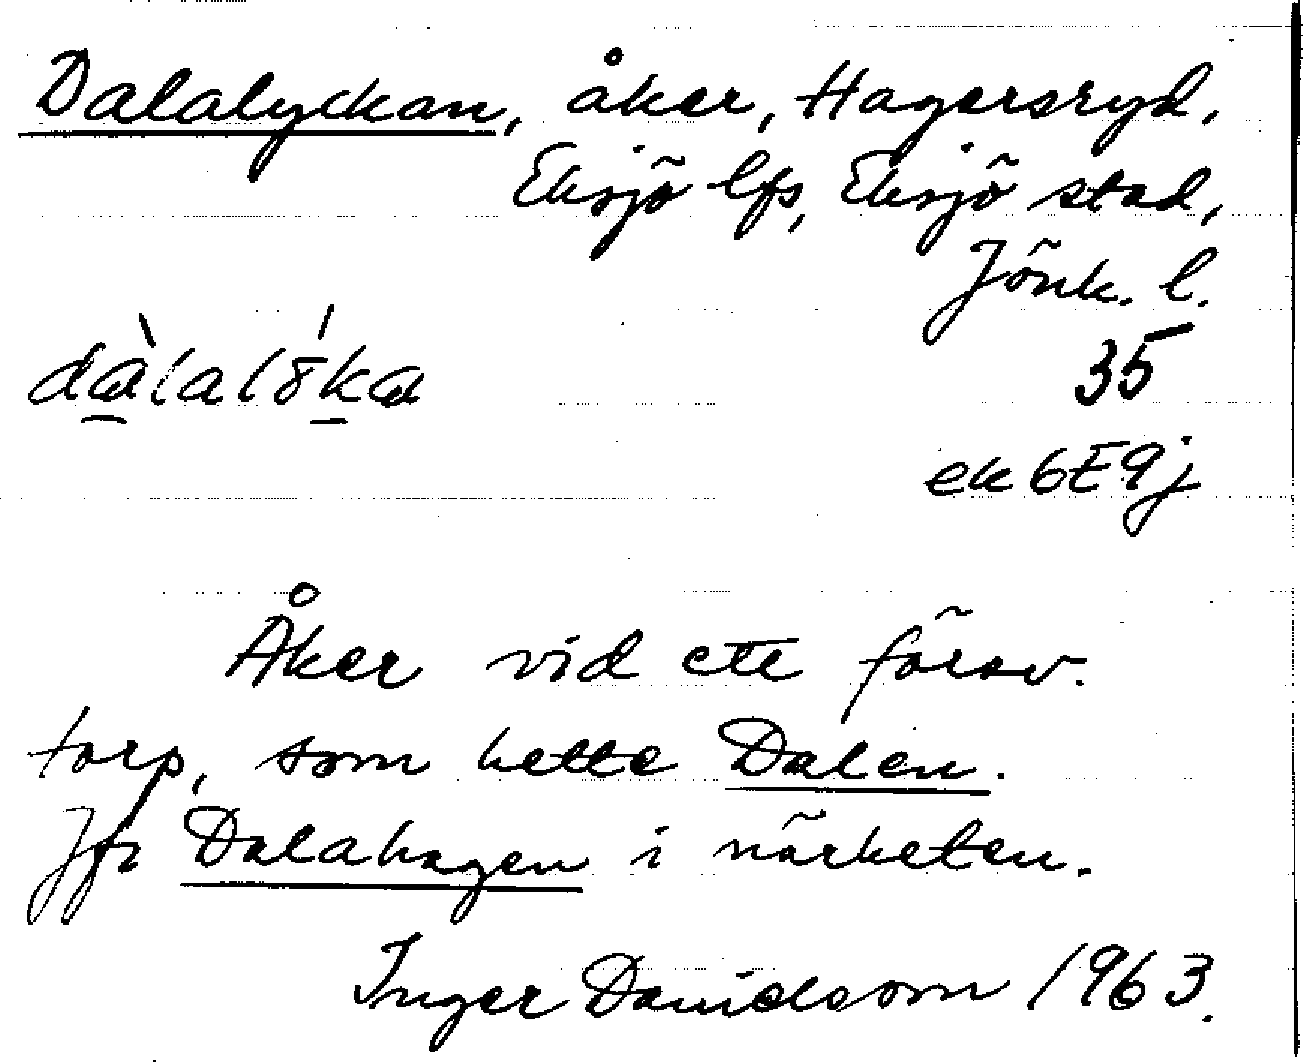 Dalalyckan, åker, Hagersryd,
Eksjö lfs, Eksjö stad,
Jönk. l.
35
ek 6E9j
Åker vid ett försv.
torp, som hette Dalen.
Jfr Dalahagen i närheten.
Inger Davidsson 1963.